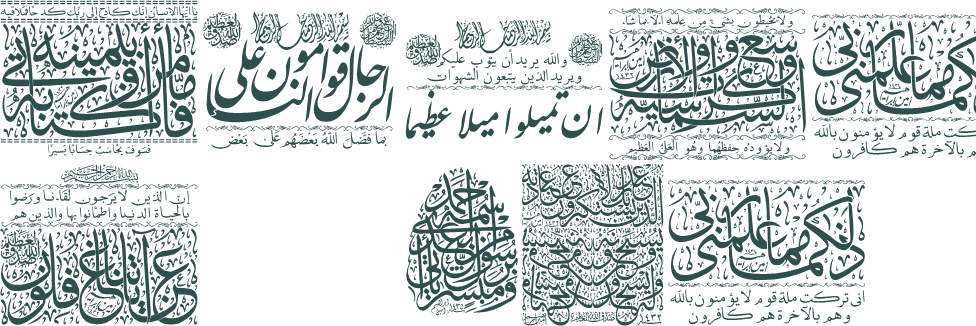 يا أيها الإنسان إنك كادح إلى ربك كدحا فملاقيه
فأما من أوتي كتابه بيمينه
فسوف يحاسب حسابا يسيرا
الرجال قوامون على النساء
بما فضل الله بعضهم على بعض
والله يريد أن يتوب عليكم
ويريد الذين يتبعون الشهوات
ان تميلوا ميلا عظيما
ولا يحيطون بشيء من علمه إلا بما شاء
وسع كرسيه السموات والأرض
ولا يؤوده حفظهما وهو العلي العظيم
ذلكما مما علمني ربي
اني تركت ملة قوم لا يؤمنون بالله
وهم بالآخرة هم كافرون
إن الذين لا يرجون لقاءنا ورضوا
بالحياة الدنيا واطمأنوا بها والذين هم
عن آياتنا غافلون
ومبشرا برسول يأتي من بعدي اسمه أحمد
ذلكما مما علمني ربي
اني تركت ملة قوم لا يؤمنون بالله
وهم بالآخرة هم كافرون